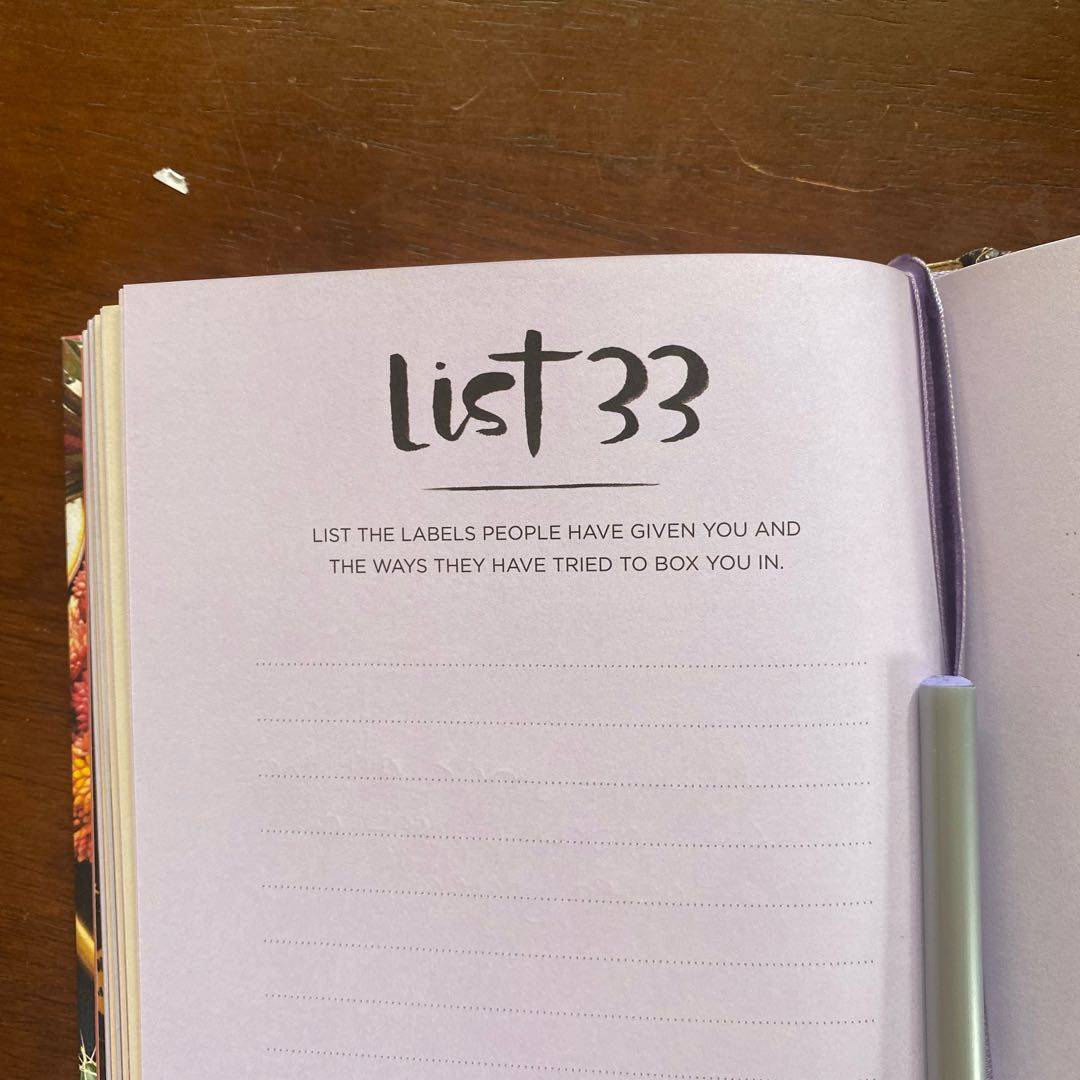 List 33
LIST THE LABELS PEOPLE HAVE GIVEN YOU AND
THE WAYS THEY HAVE TRIED TO BOX YOU IN.